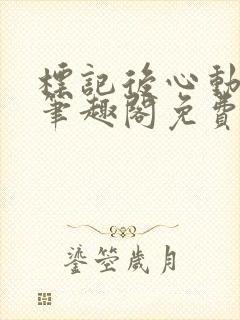 標記後心動
筆趣閣免費
鎏箜歲月